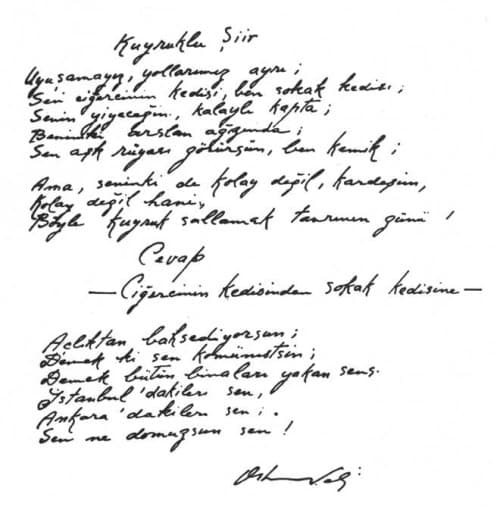 Kuyruklu Şiir
Uyuşamayız, yollarımız ayrı;
Sen ciğercinin kedisi, ben sokak kedisi;
Senin yiyeceğin, kalaylı kapta;
Benimki arslan ağzında;
Sen aşk rüyası görürsün, ben kemik;
Ama, seninki de kolay değil, kardeşim,
Kolay değil hani,
Böyle kuyruk sallamak tanrının günü!
Cevap
— Ciğercinin kedisinden sokak kedisine —
Açlıktan bahsediyorsun;
Demek ki sen komünistsin;
Demek bütün binaları yakan sens.
İstanbul'dakileri sen,
Ankara'dakileri sen;.
Sen ne domuzsun sen!
Orhan Veli